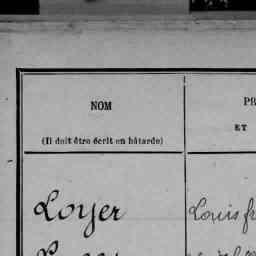 NOM
PR
ET
(Il doit être écrit en bâtarde)
Loyer
Louis fr